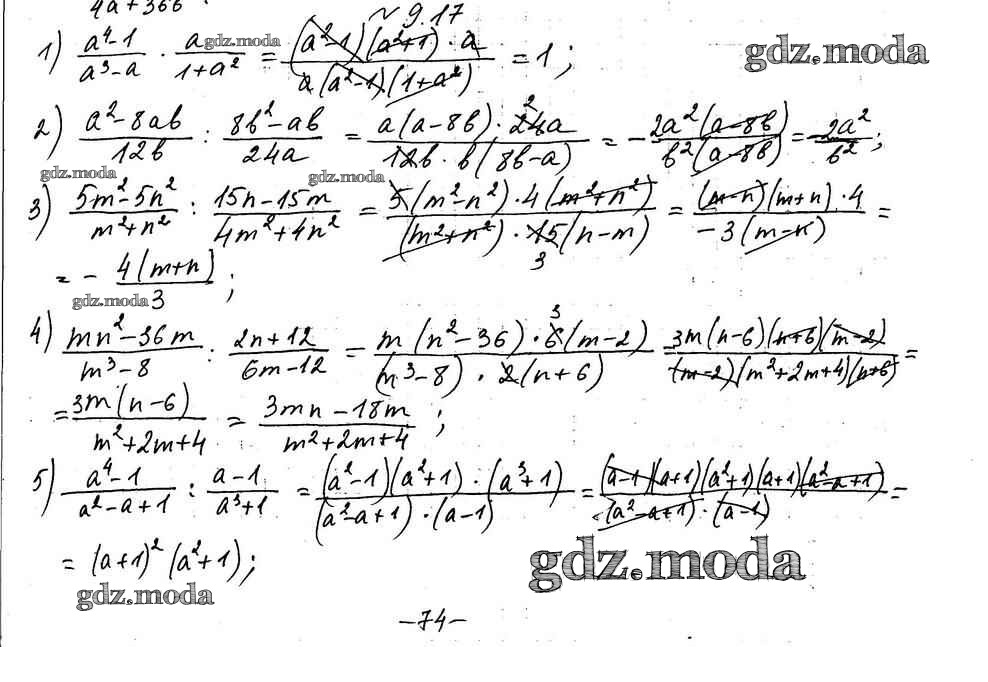 4a+36b
№ 9.17
1) (a⁴-1)/(a³-a) · a/(1+a²) = ((a²-1)(a²+1)·a)/(a(a²-1)(1+a²)) = 1;
gdz.moda
gdz.moda
2) (a²-8ab)/(12b) : (8b²-ab)/(24a) = (a(a-8b)·24a)/(12b·b(8b-a)) = -(2a²(a-8b))/(b²(a-8b)) = -2a²/b²;
2
gdz.moda
gdz.moda
3) (5m²-5n²)/(m²+n²) : (15n-15m)/(4m²+4n²) = (5(m²-n²)·4(m²+n²))/((m²+n²)·15(n-m)) = ((m-n)(m+n)·4)/(-3(m-n)) =
3
= - 4(m+n)/3;
gdz.moda
4) (mn²-36m)/(m³-8) : (2n+12)/(6m-12) = (m(n²-36)·6(m-2))/((m³-8)·2(n+6)) = (3m(n-6)(n+6)(m-2))/((m-2)(m²+2m+4)(n+6)) =
3
= 3m(n-6)/(m²+2m+4) = (3mn-18m)/(m²+2m+4);
5) (a⁴-1)/(a²-a+1) : (a-1)/(a³+1) = ((a²-1)(a²+1)·(a³+1))/((a²-a+1)·(a-1)) = ((a-1)(a+1)(a²+1)(a+1)(a²-a+1))/((a²-a+1)·(a-1)) =
= (a+1)²(a²+1);
gdz.moda
gdz.moda
-74-